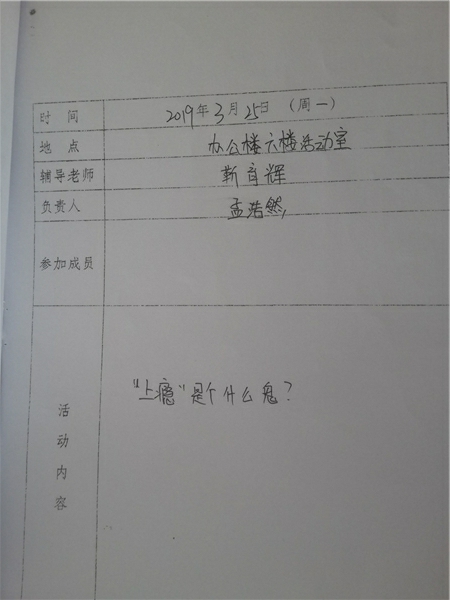 时 间 2019年3月25日 (周一)
地 点 办公楼六楼活动室
辅导老师 靳育辉
负责人 孟浩然,
参加成员
活动内容 “上瘾”是个什么鬼?